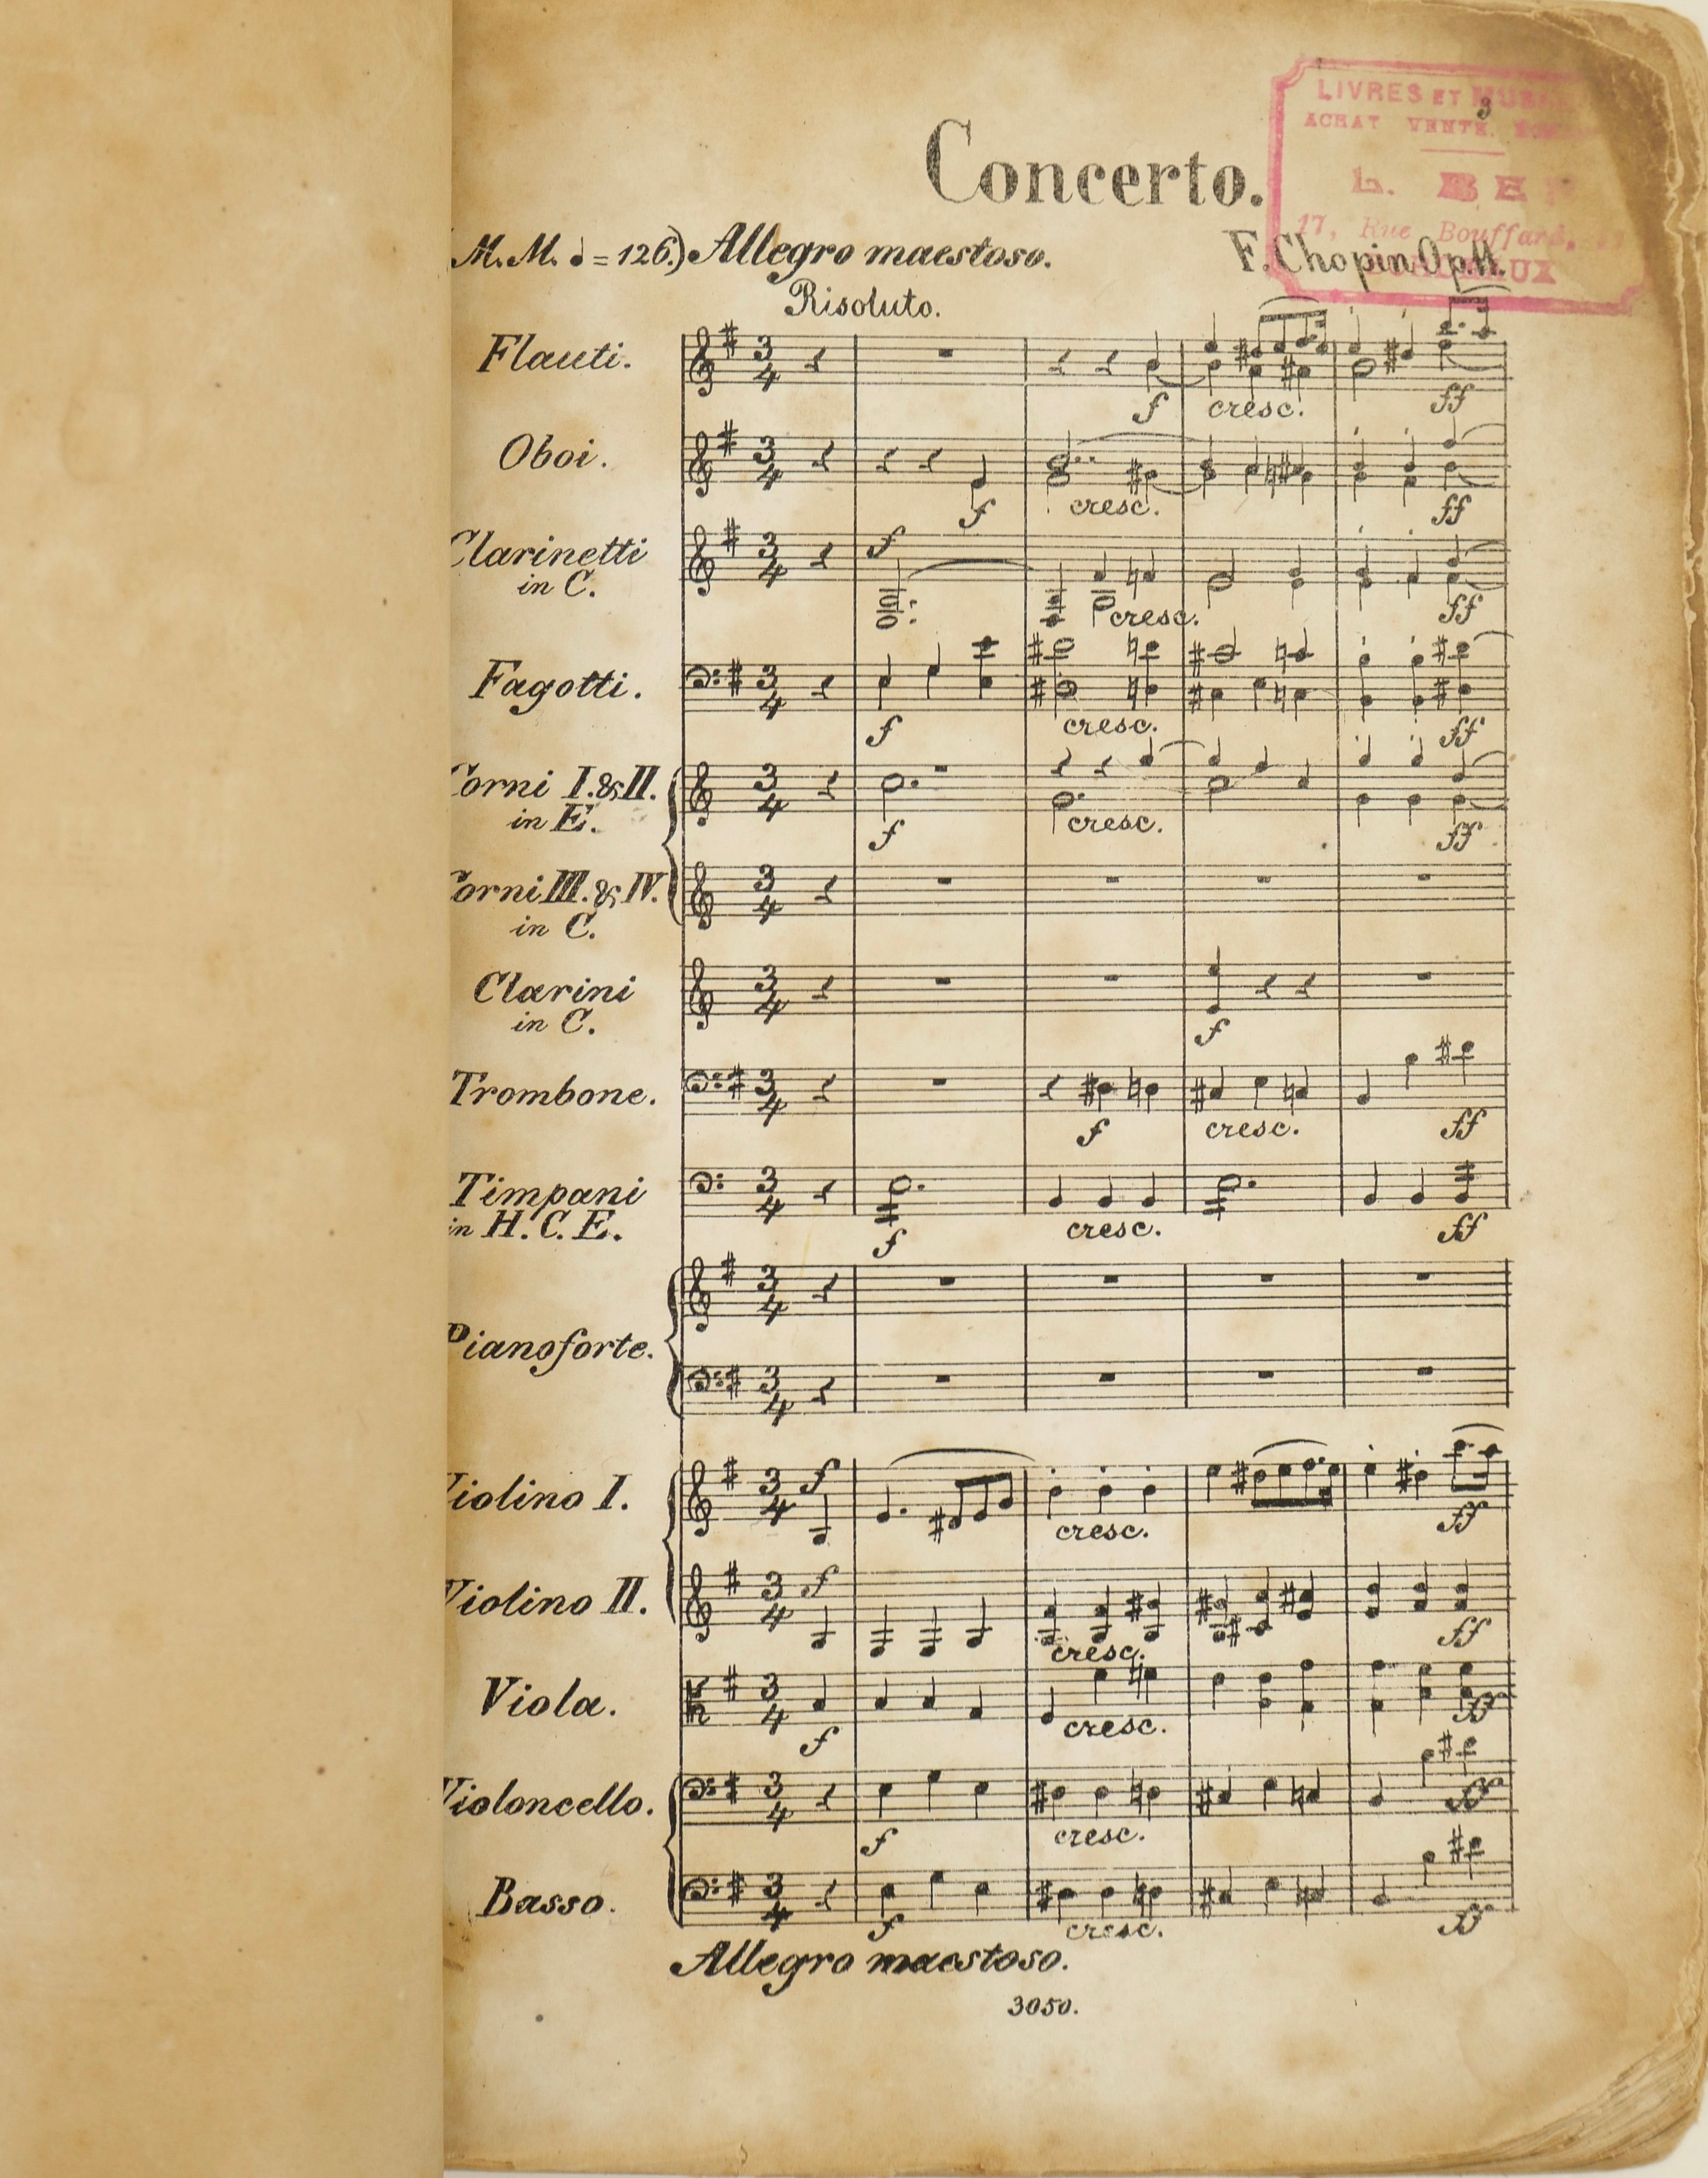 3
LIVRES ET
ACHAT VENTE
L.
17, Rue Bouffard,
Concerto.
(M.M. ♩ = 126.) Allegro maestoso.
F. Chopin Op. 11.
Risoluto.
Flauti.
3 4
f cresc. ff
Oboi.
3 4
f cresc. ff
Clarinetti
in C.
3 4
f cresc. ff
Fagotti.
3 4
f cresc. ff
Corni I. & II.
in E.
3 4
f cresc. ff
Corni III. & IV.
in C.
3 4
Clarini
in C.
3 4
f
Trombone.
3 4
f cresc. ff
Timpani
in H. C. E.
3 4
f cresc. ff
Pianoforte.
3 4
3 4
Violino I.
3 4
f cresc. ff
Violino II.
3 4
f cresc. ff
Viola.
3 4
f cresc. ff
Violoncello.
3 4
f cresc. ff
Basso.
3 4
f cresc. ff
Allegro maestoso.
3050.